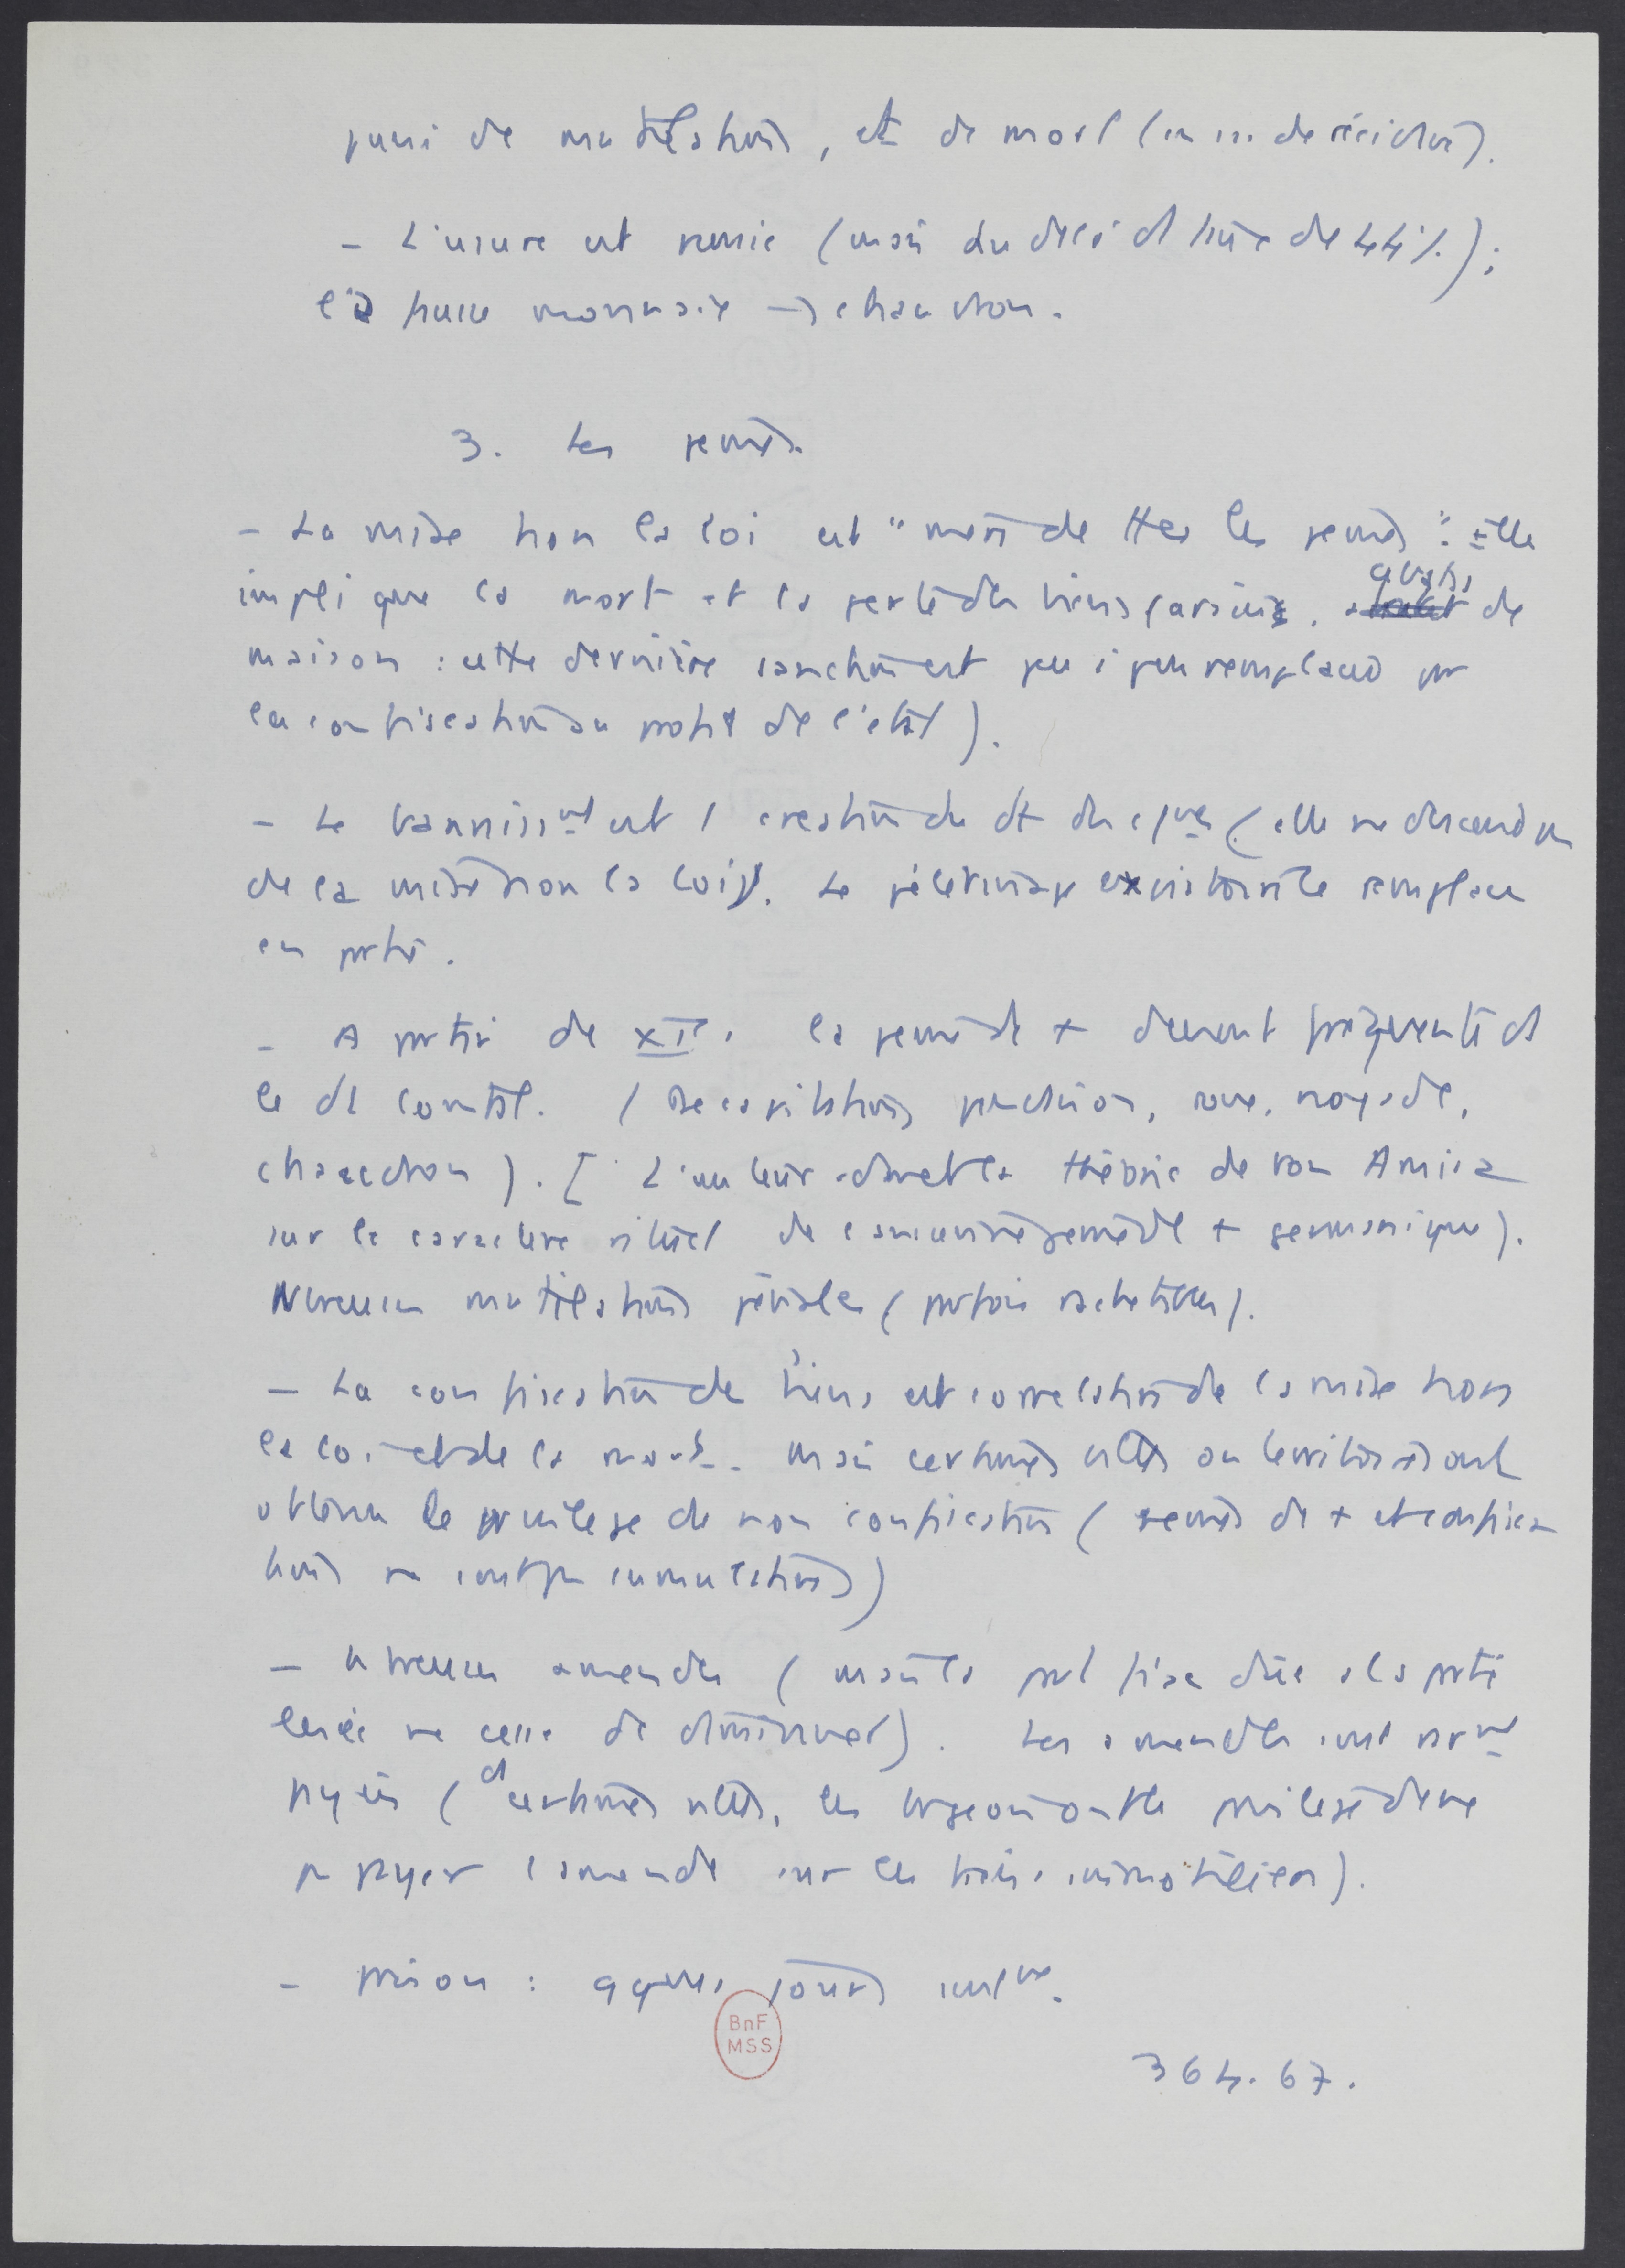 puni de mutilation, et de mort (en cas de récidive).
- L'usure est punie (mais au delà d'1 taux de 44%) ;
la fausse monnaie → chaudron.
3. Les peines
- La mise hors la loi est "mère de ttes les peines" : elle
implique la mort et la perte des biens (arsin, abattis de
maison : cette dernière sanction est peu à peu remplacée par
la confiscation au profit de l'état).
- Le bannissmt est 1 création du dt des (elle ne descend pas
de la mise hors la loi). Le pèlerinage expiatoire le remplace
en partie.
- A partir de XIIe la peine de + devient fréquente ds
le dt comtal. (Décapitation, pendaison, roue, noyade,
chaudron). [L'auteur admet la théorie de von Amira
sur le caractère rituel de l'ancienne peine de + germanique).
Nbreuses mutilations pénales (parfois rachetables).
- La confiscation de biens est corrélation de la mise hors
la loi et de la mort. Mais certaines villes ou territoires ont
obtenu le privilège de non confiscation (peines de + et confisca
tions ne sont pas cumulatives)
- Nbreuses amendes (mais la part fixe due à la partie
lésée ne cesse de diminuer). Les amendes sont
payées (ds certaines villes, les bourgeois ont le privilège de ne
pas payer l'amende sur les biens immobiliers).
- prison : qques jours
364.67.
BnF
MSS